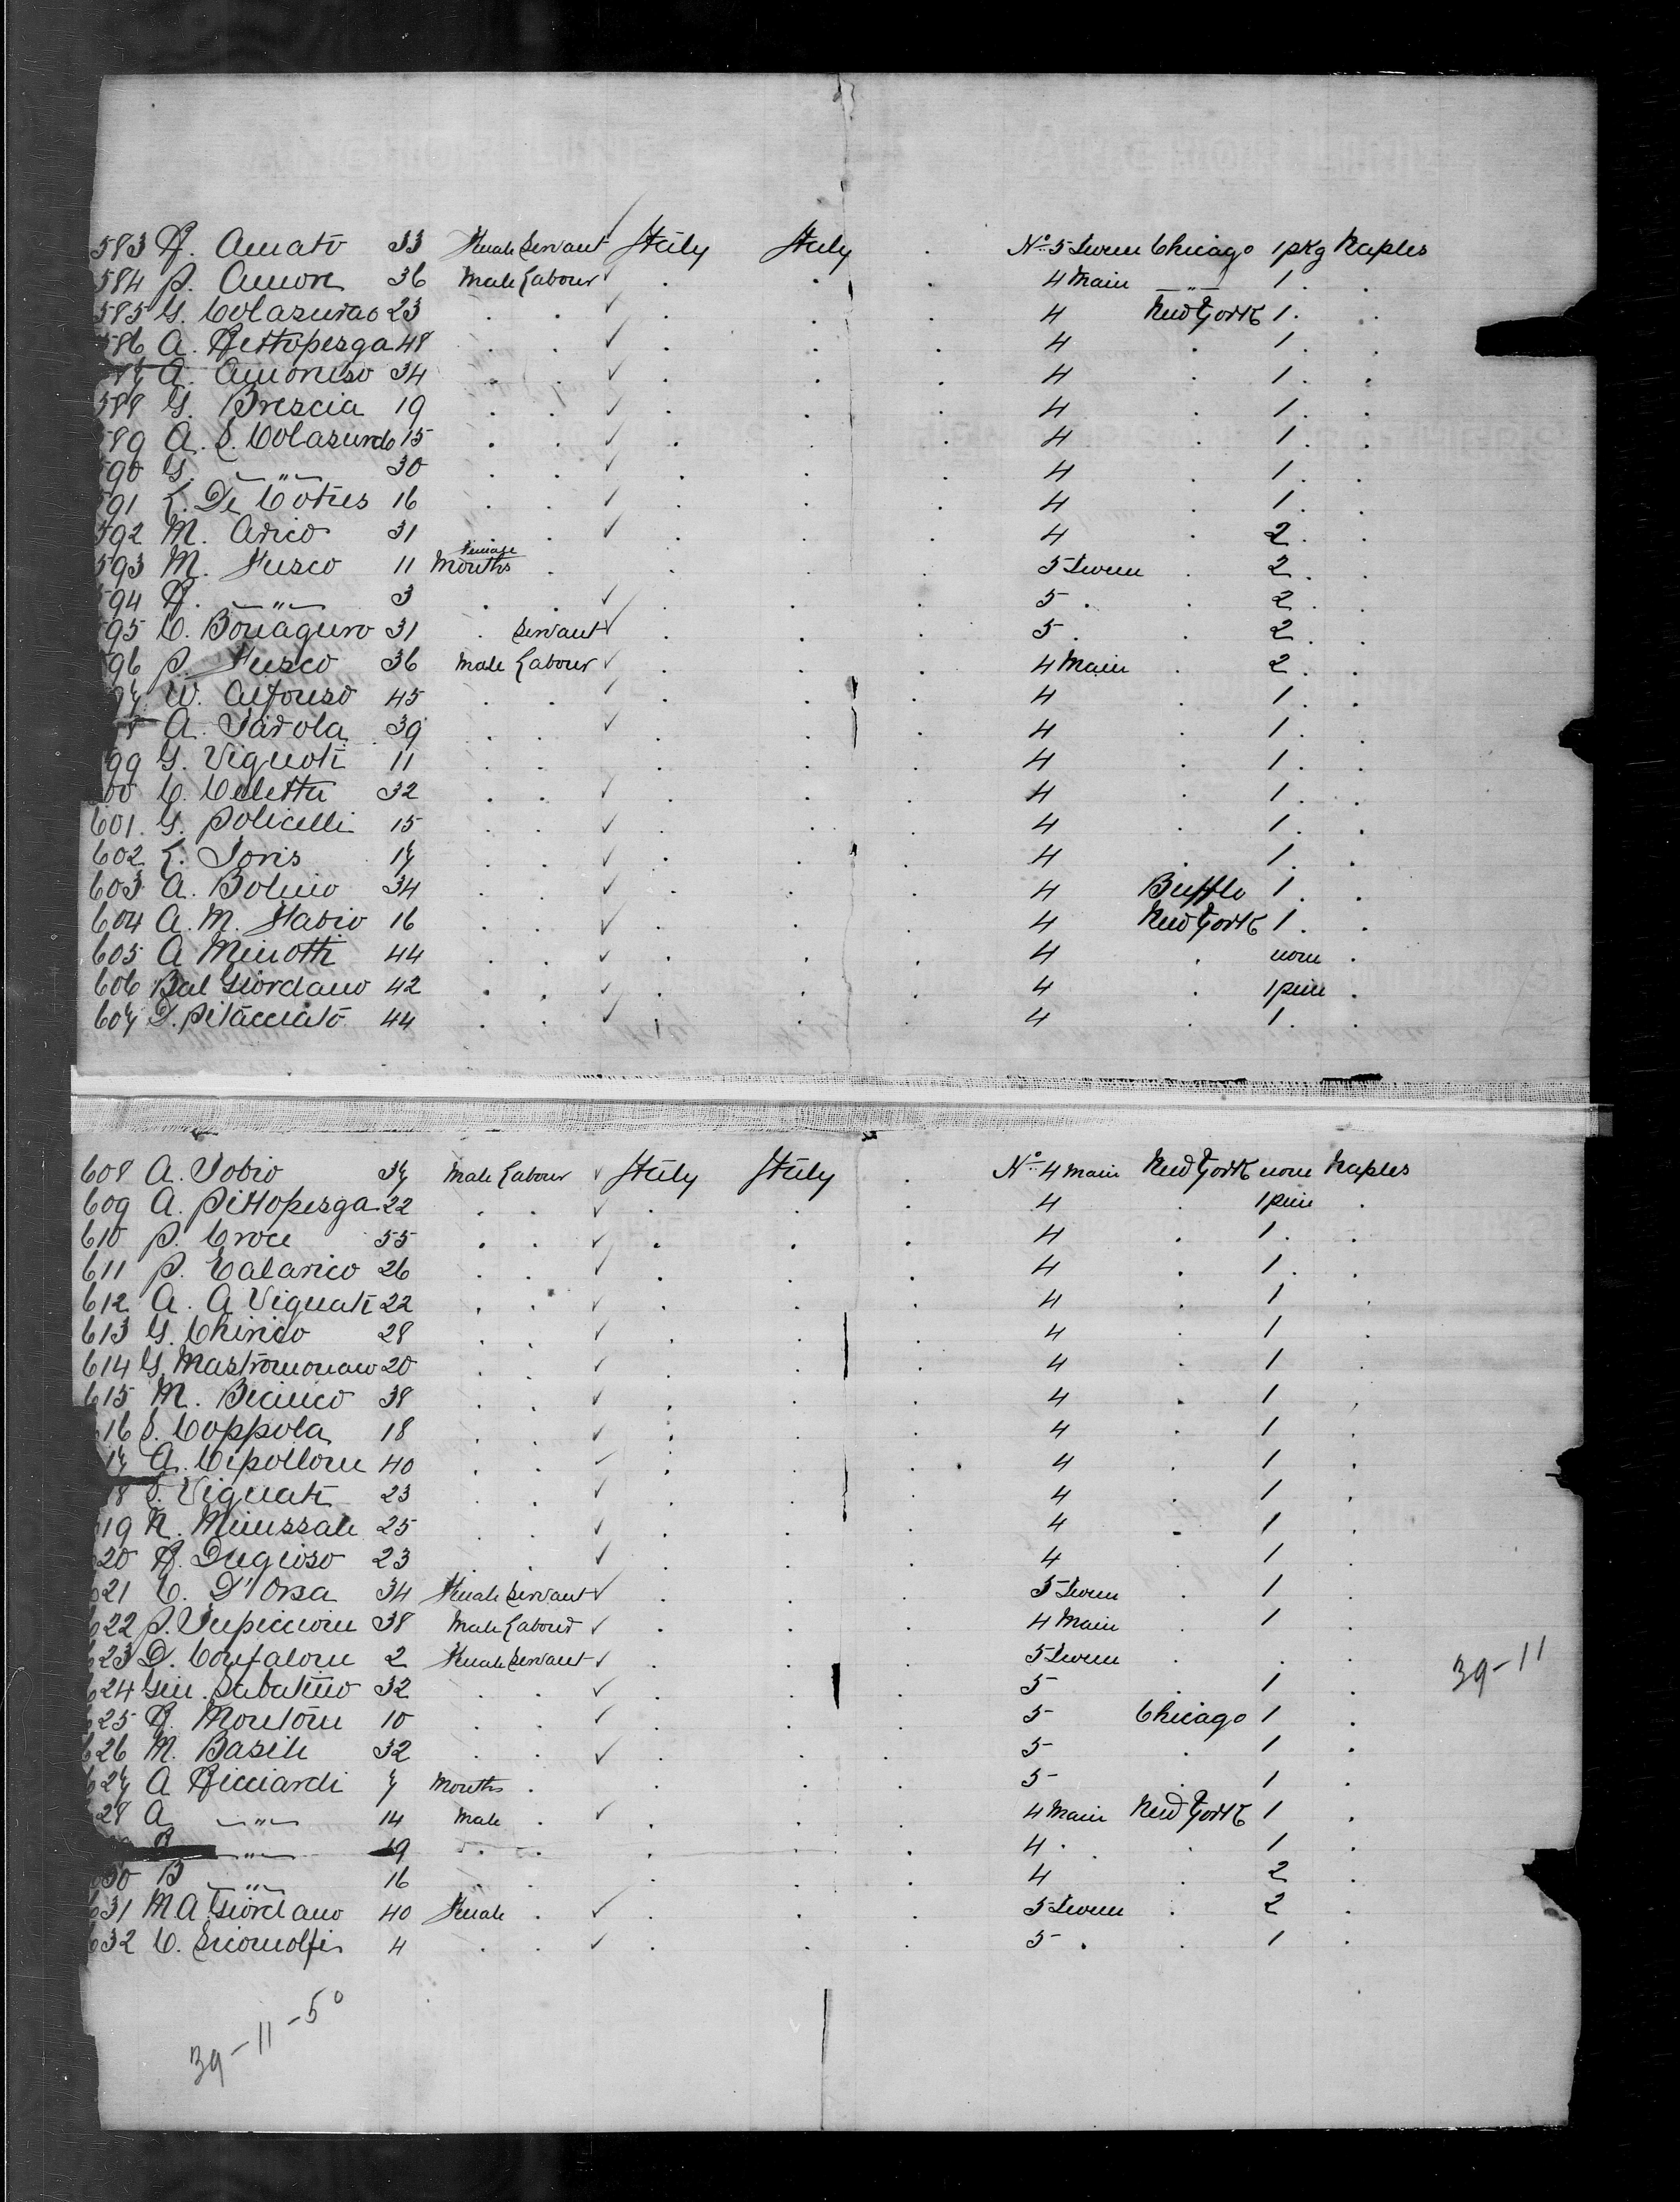 583 R. Amato 33 Female Servant ✓ Italy Italy . No 5 Twen Chicago 1 pkg Naples
584 P. Amore 36 Male Labour ✓ . . . 4 Main —"— 1 . .
585 G. Colasurdo 23 . . ✓ . . 4 New York 1 . .
586 A. Pettopezga 48 . . ✓ . . . 4 . 1 . .
587 A. Amoruso 34 . . ✓ . . . 4 . 1 . .
588 G. Brescia 19 . . ✓ . . . 4 . 1 . .
589 A. S. Colasurdo 15 . . ✓ . . . 4 . 1 . .
590 G. —"— 30 . . ✓ . . . 4 . 1 . .
591 L. De Coties 16 . . ✓ . . . 4 . 1 . .
592 M. Arico 31 . . ✓ . . . 4 . 2 . .
593 M. Fusco 11 Months Female . . . . 5 Twen . 2 . .
594 R. —"— 3 . . ✓ . . . 5 . . 2 . .
595 C. Bonaguro 31 . Servant ✓ . . . 5 . . 2 . .
596 P. Fusco 36 Male Labour ✓ . . . 4 Main . 2 . .
97 W. Alfonso 45 . . ✓ . . . 4 . 1 . .
8 A. Tarola 39 . . ✓ . . . 4 . 1 . .
99 G. Vignoti 11 . . . . . 4 . 1 . .
00 C. Celetti 32 . . ✓ . . . 4 . 1 . .
601 G. Policelli 15 . . ✓ . . . 4 . 1 . .
602 L. Joris 17 . . ✓ . . . 4 . 1 . .
603 A. Bolino 34 . . ✓ . . . 4 Bufflo 1 . .
604 A. M. Flavio 16 . . ✓ . . . 4 New York 1 . .
605 A Minotti 44 . . ✓ . . . 4 . none .
606 Bal Giordano 42 . . ✓ . . . 4 . 1 piece .
607 D. Pitacciato 44 . . ✓ . . . 4 . 1 . .
608 A. Tobio 37 Male Labour ✓ Italy Italy . No 4 Main New York none Naples
609 A. Pittopezga 22 . . ✓ . . . 4 . 1 piece .
610 P. Croce 55 . . ✓ . . . 4 . 1 . .
611 P. Calarico 26 . . ✓ . . . 4 . 1 . .
612 A. A Vignati 22 . . ✓ . . . 4 . 1 .
613 G. Chirico 28 . . ✓ . . . 4 . 1 .
614 G. Mastromonaco 20 . . ✓ . . . 4 . 1 .
615 M. Bianco 38 . . ✓ . . . 4 . 1 .
16 S. Coppola 18 . . ✓ . . . 4 . 1 .
17 A. Cipollone 40 . . ✓ . . . 4 . 1 .
18 S. Vignati 23 . . ✓ . . . 4 . 1 .
19 N. Minssale 25 . . ✓ . . . 4 . 1 .
20 R. Dugioso 23 . . ✓ . . . 4 . 1 .
621 C. D'Orsa 34 Female Servant ✓ . . . 5 Twen . 1 .
622 P. Tupiccione 38 Male Labour ✓ . . . 4 Main . 1 .
623 D. Confalone 2 Female Servant ✓ . . . 5 Twen . . .
39-11
624 Giu. Sabatino 32 . . ✓ . . . 5 . 1 .
625 R. Montone 10 . . ✓ . . . 5 Chicago 1 .
626 M. Basile 32 . . ✓ . . . 5 . 1 .
627 A Ricciardi 7 Months . . . . 5 . 1 .
628 A —"— 14 Male . ✓ . . . 4 Main New York 1 .
—"— 19 . . . . . 4 . . 1 .
630 B —"— 16 . . . . . 4 . 2 .
631 M. A. Giordano 40 Female . ✓ . . . 5 Twen . 2 .
632 C. Sicomolfi 4 . . ✓ . . . 5 . . 1 .
39-11-50